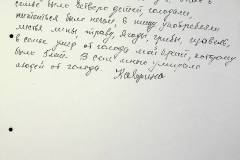 семье было четверо детей, голодали,
питаться было нечем, в пищу употребляли
листья липы, траву, ягоды, грибы, крапиву,
в семье умер от голода мой брат, которому
было 5 лет. В селе много умирало
людей от голода.